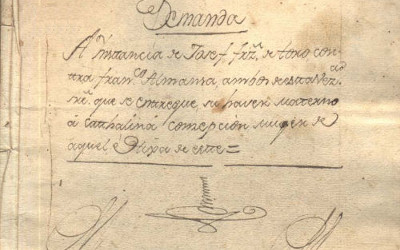 Demanda
A Ynstancia de Josef frz. de toro con
tra franco. Almania, ambos de esta Vezdad.
sre. que se entregue su haver materno
á Catthalina Comcepcion muger de
aquel é Hixa de este=